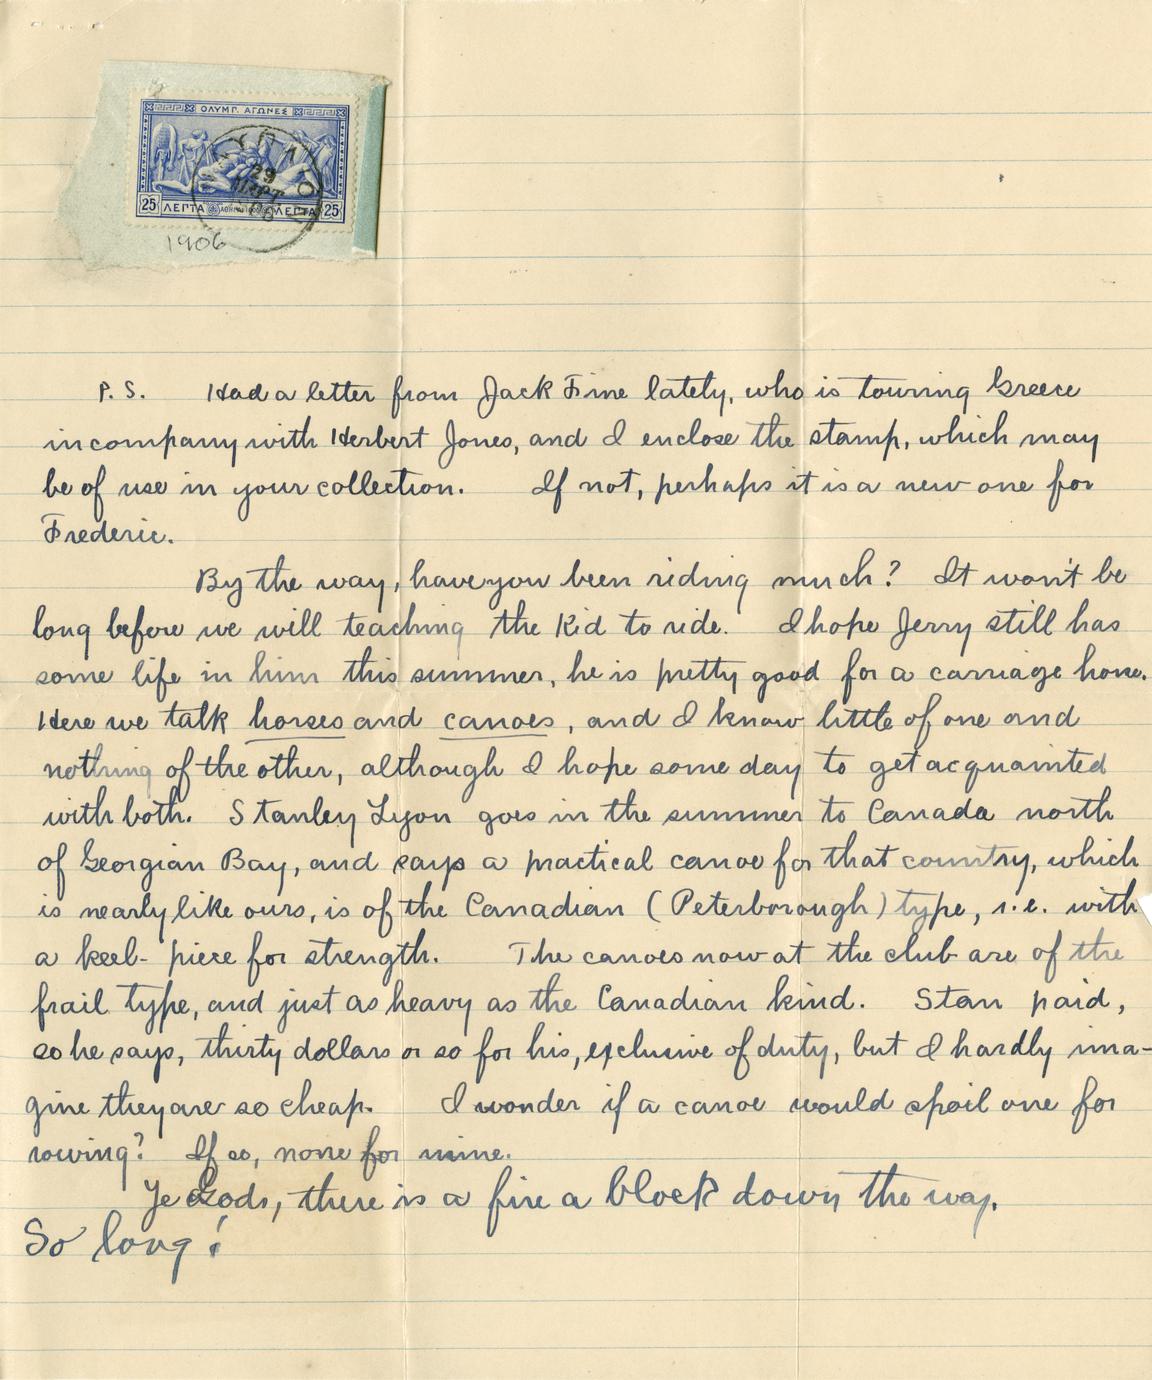 ΟΛΥΜΠ. ΑΓΩΝΕΣ
25 ΛΕΠΤΑ ΛΕΠΤΑ 25
29
ΜΑΡΤ
1906
P.S. Had a letter from Jack Fine lately, who is touring Greece
in company with Herbert Jones, and I enclose the stamp, which may
be of use in your collection. If not, perhaps it is a new one for
Frederic.
By the way, have you been riding much? It won't be
long before we will teaching the Kid to ride. I hope Jerry still has
some life in him this summer, he is pretty good for a carriage horse.
Here we talk horses and canoes, and I know little of one and
nothing of the other, although I hope some day to get acquainted
with both. Stanley Lyon goes in the summer to Canada north
of Georgian Bay, and says a practical canoe for that country, which
is nearly like ours, is of the Canadian (Peterborough) type, i.e. with
a keel-piece for strength. The canoes now at the club are of the
frail type, and just as heavy as the Canadian kind. Stan paid,
so he says, thirty dollars or so for his, exclusive of duty, but I hardly ima-
gine they are so cheap. I wonder if a canoe would spoil one for
rowing? If so, none for mine.
Ye Gods, there is a fire a block down the way.
So long!